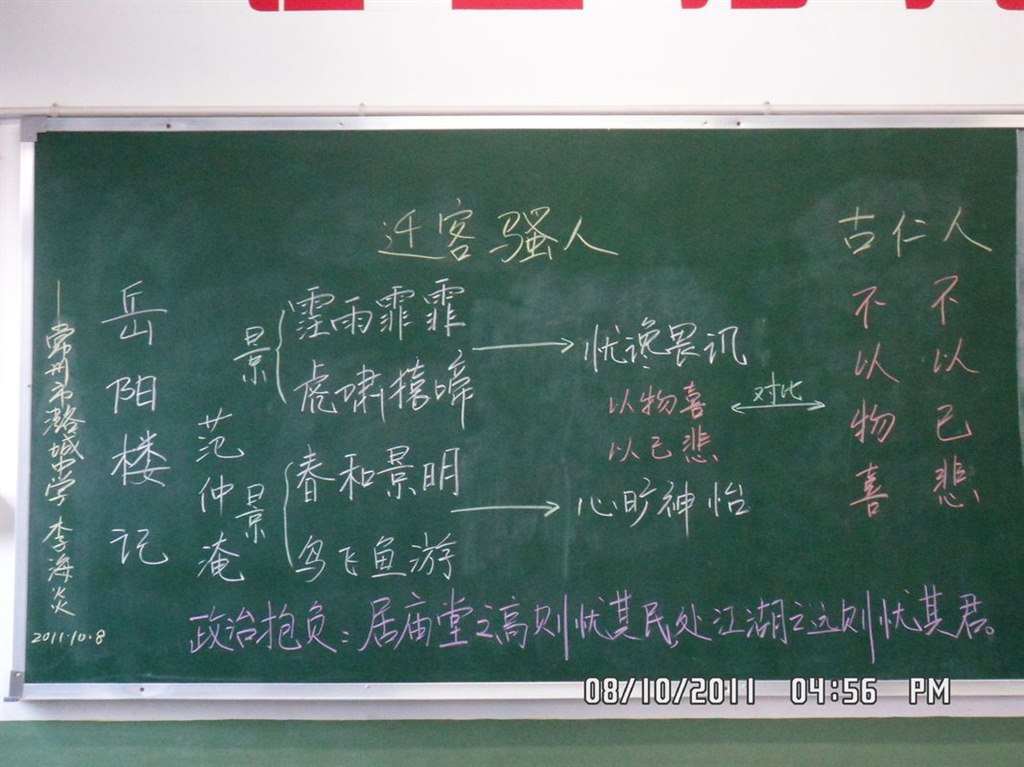 迁客骚人
古仁人
岳阳楼记
范仲淹
——常州市潞城中学 李海炎
2011.10.8
景
霪雨霏霏
虎啸猿啼
忧谗畏讥
以物喜
以己悲
对比
不以物喜
不以己悲
景
春和景明
鸟飞鱼游
心旷神怡
政治抱负：居庙堂之高则忧其民，处江湖之远则忧其君。
08/10/2011 04:56 PM